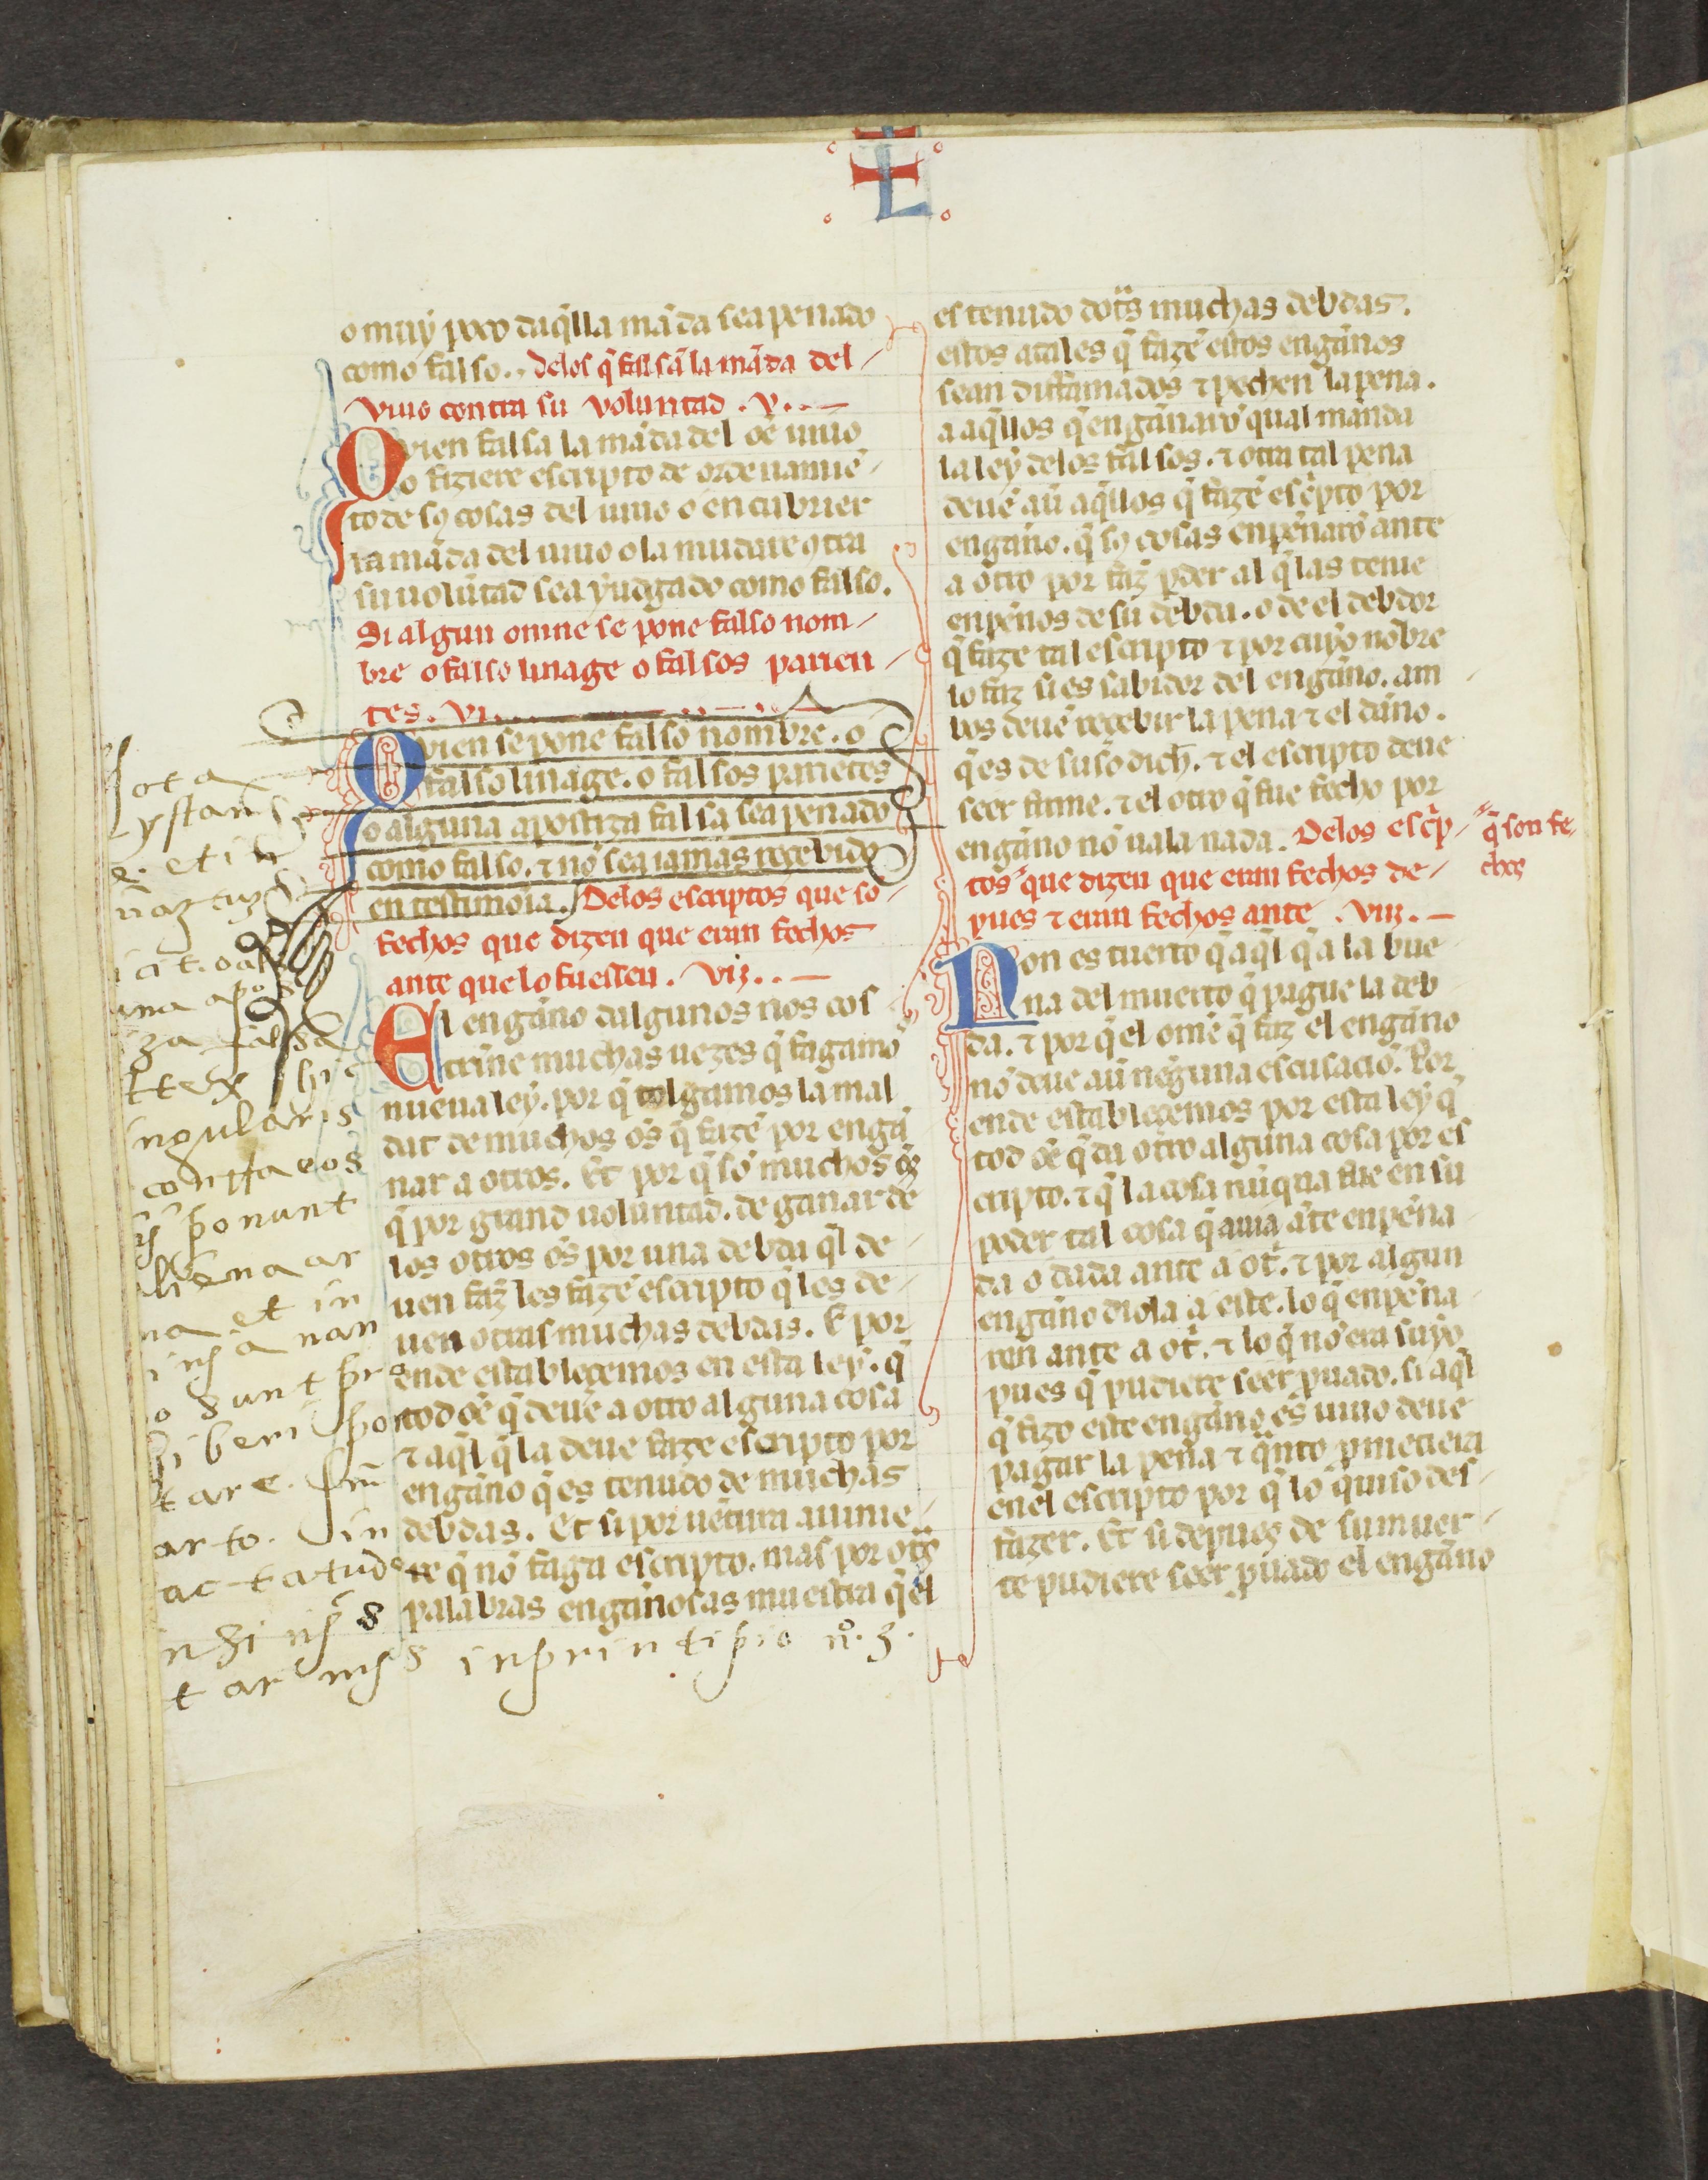 L
o muy poco daq̃lla mãda sea penado
como falso. Delos q̃ falsã la mãda del
viuo contra su voluntad . v.
Quien falsa la mãda del oẽ uiuo
o fiziere escripto de ordenamiẽ
to de sꝯ cosas del uiuo o encubrier
la mãda del uiuo o la mudare ꝯtra
su uolũtad sea yudgado como falso.
Si algun omne se pone falso nom
bre o falso linage o falsos parien
tes. vi.
Quien se pone falso nombre. o
falso linage. o falsos pariẽtes
o alguna apostiza falsa sea penado
como falso. ⁊ nõ sea iamas recebido
en testimonia. Delos escriptos que so
fechos que dizen que eran fechos
ante que lo fuessen. vii.
El engãno dalgunos nos cos
trinne muchas uezes q̃ fagamõ
nueua ley. por q̃ tolgamos la mal
dat de muchos oẽs q̃ fazẽ por engã
nar a otros. Et por q̃ sõ muchos oẽs
q̃ por grand uoluntad. de ganar de
los otros oẽs por una debda q̃l de
uen faz̃ les fazẽ escripto q̃ les de
uen otras muchas debdas. E por
ende establecemos en esta ley. q̃
tod oẽ q̃ deue a otro alguna cosa
⁊ aq̃l q̃ la deue faze escripto por
engãno q̃ es tenudo de muchas
debdas. Et si por uẽtura auinie
re q̃ nõ faga escripto. mas por otr̃s
palabras engãnosas muestra q̃ el
es tenudo dotr̃s muchas debdas.
estos atales q̃ fazẽ estos engãnos
sean diffamados ⁊ pechen la pena.
a aq̃llos q̃ engãnarõ qual manda
la ley delos falsos. ⁊ otra tal pena
deuẽ auer aq̃llos q̃ fazẽ esc̃pto por
engãno. q̃ sꝯ cosas enpẽnarõ ante
a otro por faz̃ ꝑder al q̃ las tenie
enpẽnos de su debda. o de el debdor
q̃ faze tal escripto ⁊ por cuyo nõbre
lo faz si es sabidor del engãno. am
bos deuẽ recebir la pena ⁊ el dãno.
q̃ es de suso dich̃. ⁊ el escripto deue
seer firme. ⁊ el otro q̃ fue fecho por
engãno nõ uala nada. Delos esc̃p
tos que dizen que eran fechos de
pues ⁊ eran fechos ante . viii.
q̃ son fe
chos
Non es tuerto q̃ aq̃l q̃ a la bue
na del muerto q̃ pague la deb
da. ⁊ por q̃ el omẽ q̃ faz el engãno
nõ deue auer neguna escusaciõ. Por
ende establecemos por esta ley q̃
tod oẽ q̃ da otro alguna cosa por es
cripto. ⁊ q̃ la cosa nũqua fue en su
poder tal cosa q̃ auia ãte enpẽna
da o dada ante a ot̃. ⁊ por algun
engãno diola a este. lo q̃ enpẽna
ron ante a ot̃. ⁊ lo q̃ nõ era suyo
pues q̃ pudiere seer ꝓuado. si aq̃l
q̃ fizo este engãno es uiuo deue
pagar la pena ⁊ q̃nto ꝓmetiera
enel escripto por q̃ lo quiso des
fazer. Et si depues de su muer
te pudiere seer ꝓuado el engãno
una apos
iza falsa
ingularis
ponunt
et in
sunt
in principio nº. 3.